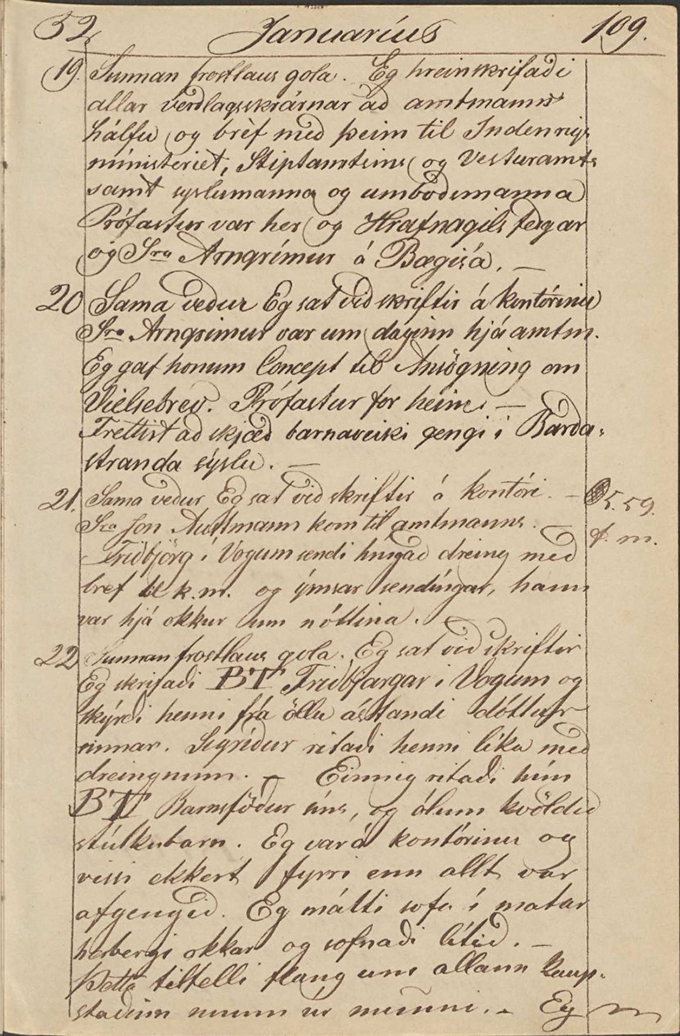 52 Januaríus 109.
19. Sunnan frostlaus gola. Eg hreinskrifaði
allar verdlagsskrárnar ad amtmanns
hálfu og brèf með þeim til Indenrigs
ministeriet, Stiptamtsins og Vesturamts
samt syslumanna og umbodsmanna
Prófastur var her og Hrafnagils fedgar
og Sra Arngrímur á Bægisá. —
20 Sama vedur Eg sat við skriftir á kontórinu
Sra Arngrimur var um daginn hjá amtm.
Eg gaf honum Concept til Ansögning om
Vielsebrev. Prófastur for heim. —
Frettist ad skjæd barnaveiki gengi i Barda-
stranda sýslu. —
21. Sama vedur Eg sat við skriftir á kontóri. — 5.59.
Sra Jon Austmann kom til amtmanns. — f. m.
Fridbjörg i Vogum sendi hingað dreing með
bref til k.m. og ýmsar sendíngar, hann
var hjá okkur um nóttina.
22 Sunnan frostlaus gola. Eg sat við skriftir
Eg skrifaði BT Fridbjargar i Vogum og
skýrdi henni frá öllu ástandi dóttur
sinnar. Sigríður ritaði henni lika með
dreingnum. — Einnig ritaði hún
BT Barnsföður síns, og ólum kvöldið
stúlkubarn. Eg var á kontórinu og
vissi ekkert fyrri enn allt var
afgengið. Eg mátti sofa í matar
herbergi okkar og sofnaði lítið. —
Þetta tilfelli flaug um allann kaup-
staðinn munn úr munni. — Eg